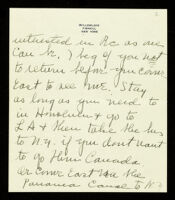 2
WILLOWLAKE
FISHKILL
NEW YORK
interested in Rc as one
can be. I beg of you not
to return before you come
East to see me. Stay
as long as you need to
in Honolulu & go to
LA & then take the bus
to N.Y. if you don't want
to go thru Canada
or come East via the
Panama Canal to N.Y.